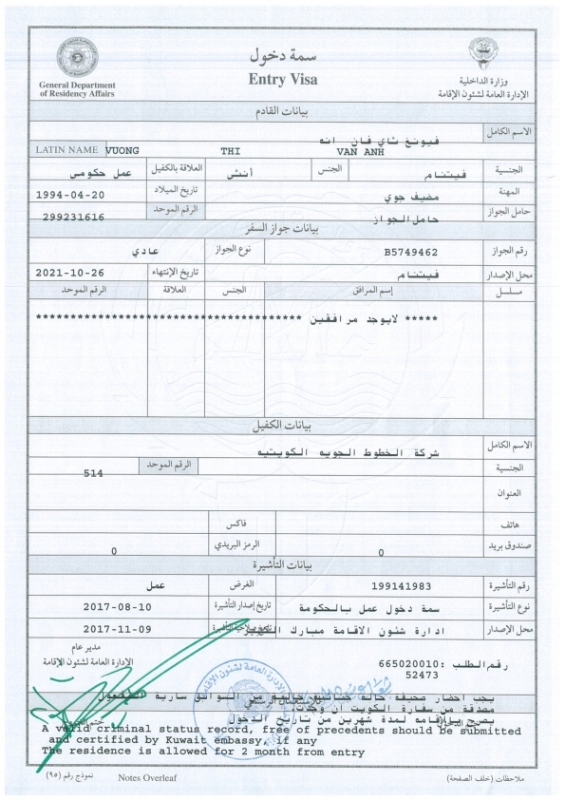 سمة دخول
Entry Visa
General Department
of Residency Affairs
وزارة الداخلية
الإدارة العامة لشئون الإقامة
بيانات القادم
الاسم الكامل فيونغ ثاي فان انه
LATIN NAME VUONG THI VAN ANH
الجنسية فيتنام الجنس أنثى العلاقة بالكفيل عمل حكومي
المهنة مضيف جوي تاريخ الميلاد 1994-04-20
حامل الجواز حامل الجواز الرقم الموحد 299231616
بيانات جواز السفر
رقم الجواز B5749462 نوع الجواز عادي
محل الإصدار فيتنام تاريخ الإنتهاء 2021-10-26
مسلسل إسم المرافق الجنس العلاقة الرقم الموحد
***** لايوجد مرافقين ***************************************
بيانات الكفيل
الاسم الكامل شركة الخطوط الجويه الكويتيه
الجنسية الرقم الموحد 514
العنوان
هاتف فاكس
صندوق بريد 0 الرمز البريدي 0
بيانات التأشيرة
رقم التأشيرة 199141983 الغرض عمل
نوع التأشيرة سمة دخول عمل بالحكومة تاريخ إصدار التأشيرة 2017-08-10
محل الإصدار ادارة شئون الاقامة مبارك الكبير 2017-11-09
مدير عام
الإدارة العامة لشئون الإقامة
رقم الطلب: 665020010
52473
يجب احضار صحيفة حالة جنائية خالية من السوابق سارية المفعول
مصدقة من سفارة الكويت ان وجدت
يصرح بالإقامه لمدة شهرين من تاريخ الدخول
A valid criminal status record, free of precedents should be submitted
and certified by Kuwait embassy, if any
The residence is allowed for 2 month from entry
ملاحظات (خلف الصفحة) Notes Overleaf نموذج رقم (٩٥)